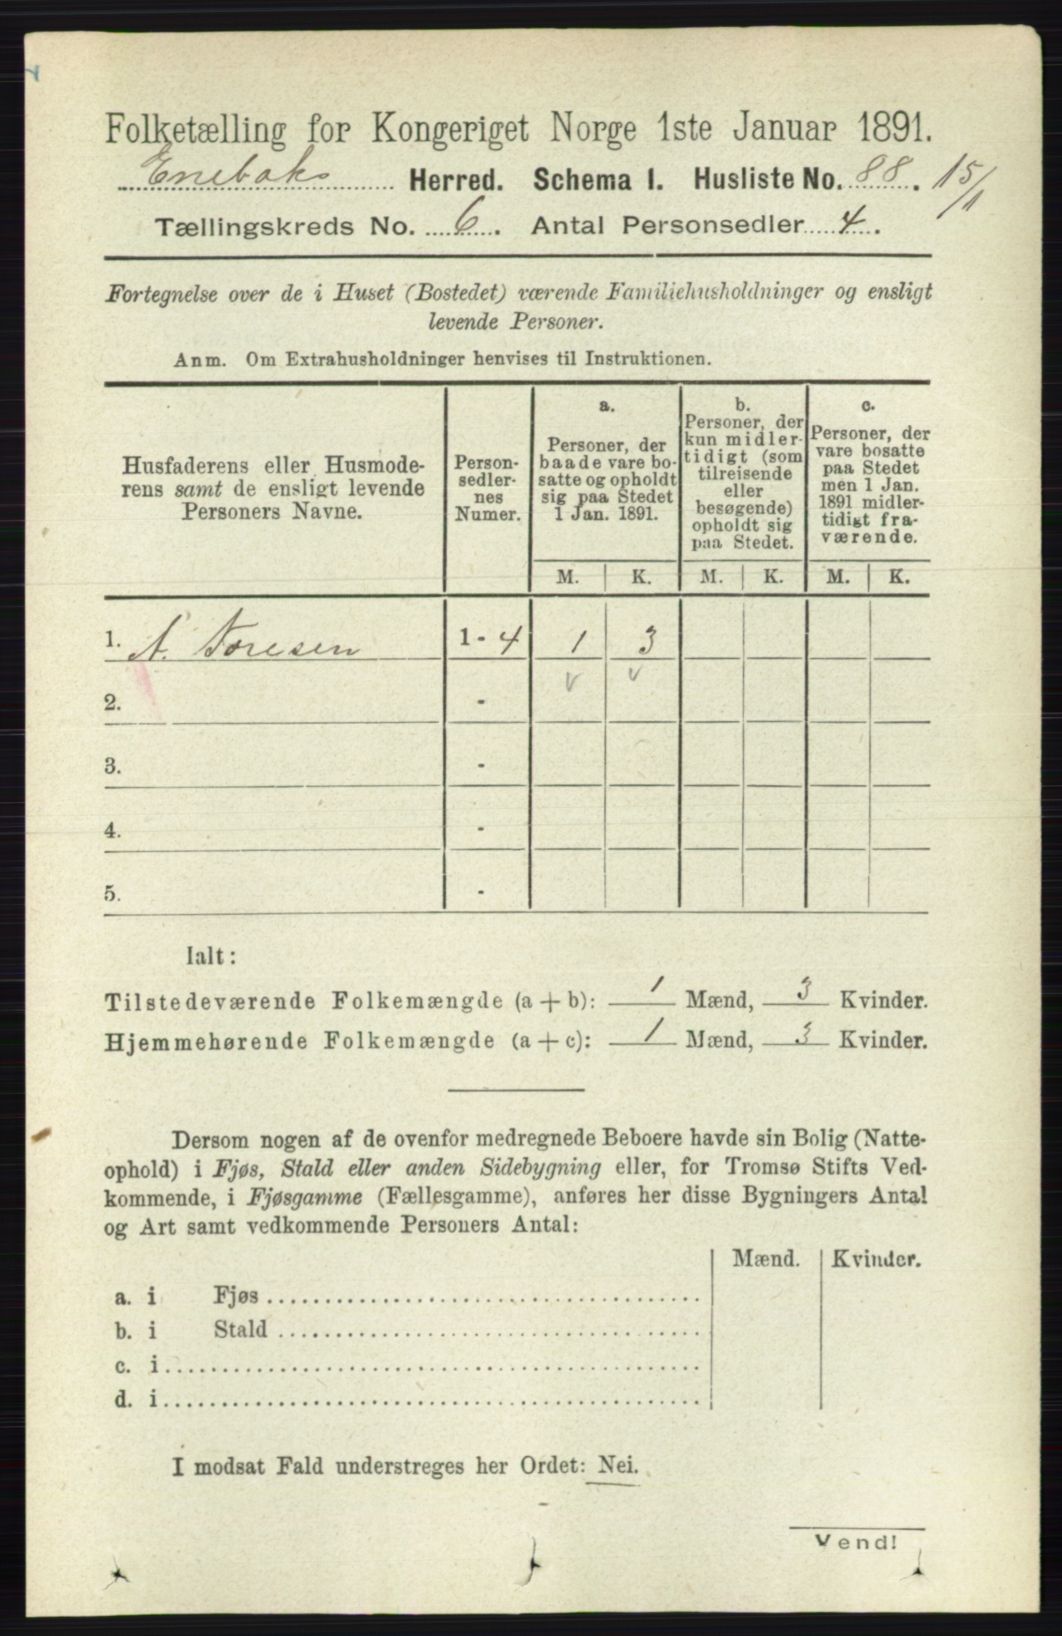 Folketælling for Kongeriget Norge 1ste Januar 1891.
Enebaks Herred. Schema I. Husliste No. 88. 15/1
Tællingskreds No. 6. Antal Personsedler 4.
Fortegnelse over de i Huset (Bostedet) værende Familiehusholdninger og ensligt
levende Personer.
Anm. Om Extrahusholdninger henvises til Instruktionen.
Husfaderens eller Husmode-
rens samt de ensligt levende
Personers Navne.
Person-
sedler-
nes
Numer.
a.
Personer, der
baade vare bo-
satte og opholdt
sig paa Stedet
1 Jan. 1891.
b.
Personer, der
kun midler-
tidigt (som
tilreisende
eller
besøgende)
opholdt sig
paa Stedet.
c.
Personer, der
vare bosatte
paa Stedet
men 1 Jan.
1891 midler-
tidigt fra-
værende.
M. K. M. K. M. K.
1. A. Toresen 1 - 4 1 3
v v
2. -
3. -
4. -
5. -
Ialt:
Tilstedeværende Folkemængde (a + b): 1 Mænd, 3 Kvinder.
Hjemmehørende Folkemængde (a + c): 1 Mænd, 3 Kvinder.
Dersom nogen af de ovenfor medregnede Beboere havde sin Bolig (Natte-
ophold) i Fjøs, Stald eller anden Sidebygning eller, for Tromsø Stifts Ved-
kommende, i Fjøsgamme (Fællesgamme), anføres her disse Bygningers Antal
og Art samt vedkommende Personers Antal:
Mænd. Kvinder.
a. i Fjøs
b. i Stald
c. i
d. i
I modsat Fald understreges her Ordet: Nei.
Vend!